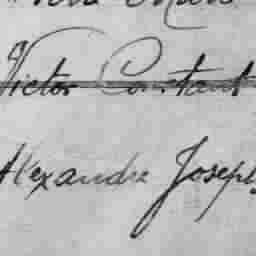 Victor Constant
Alexandre Joseph